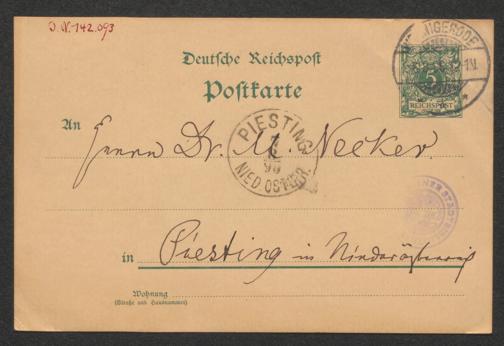 J.N. 142.093
Deutsche Reichspost
Postkarte
5
REICHSPOST
An
Herrn Dr. M. Necker.
PIESTING
95
NIED. OSTERR.
in
Piesting in Niederösterreich
Wohnung
(Straße und Hausnummer)